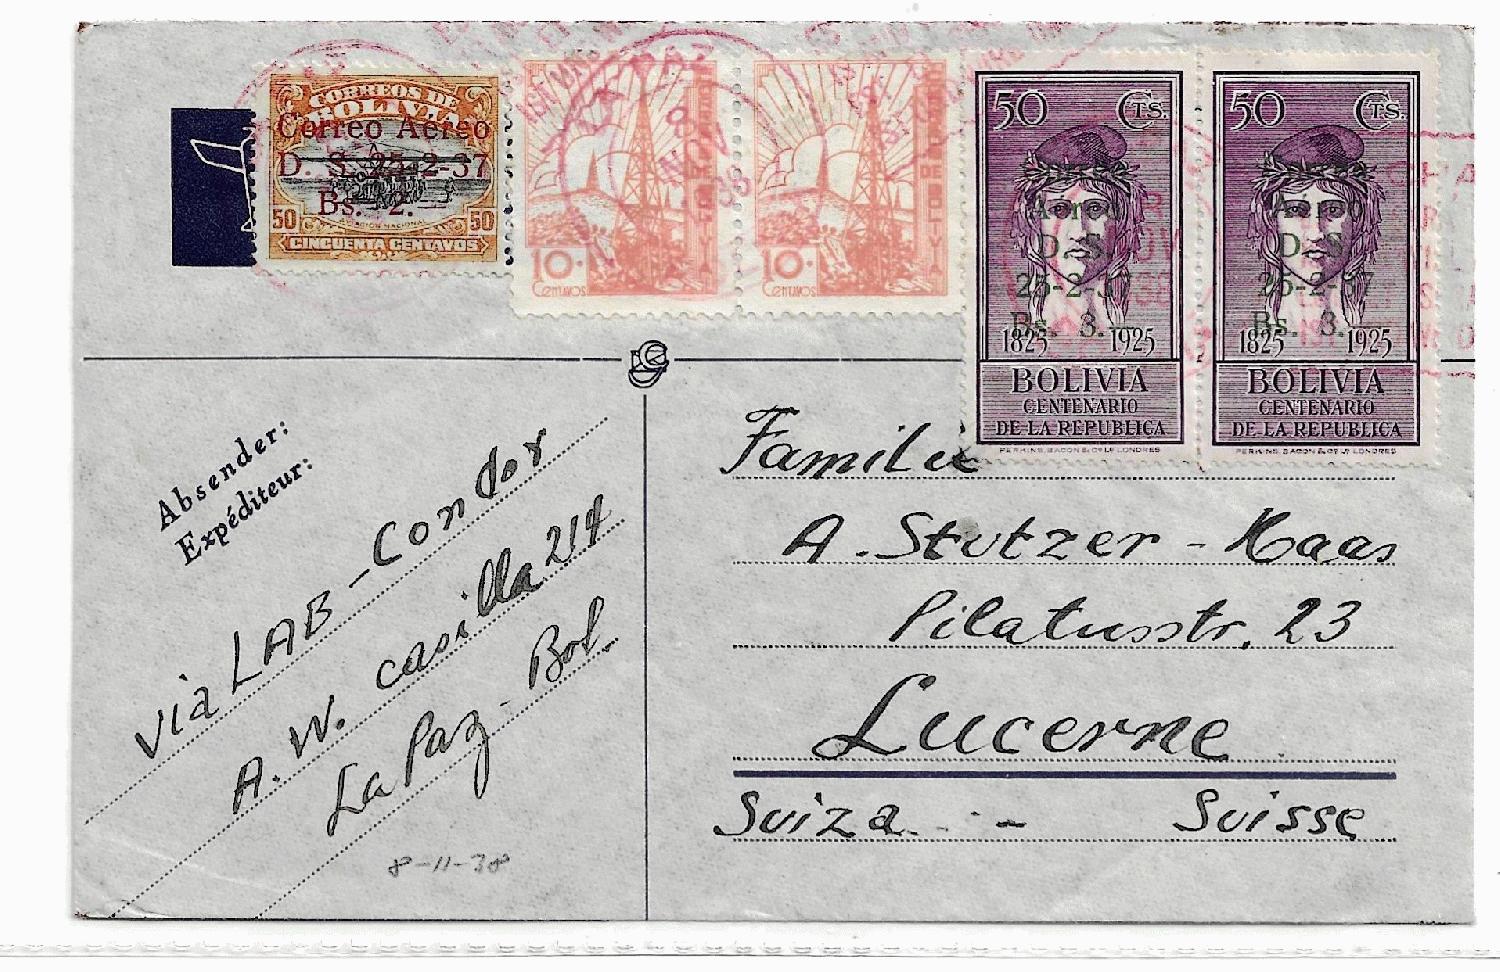 CORREOS DE
BOLIVIA
Correo Aéreo
D. S. 25-2-37
Bs. 2.
50 50
CINCUENTA CENTAVOS
LA PAZ
NOV
38
10.
Centavos
10.
Centavos
50 Cts.
Aéreo
D. S.
25-2-37
Bs. 3.
1825 1925
BOLIVIA
CENTENARIO
DE LA REPUBLICA
PERKINS, BACON & Co. Ld. LONDRES
50 Cts.
Aéreo
D. S.
25-2-37
Bs. 3.
1825 1925
BOLIVIA
CENTENARIO
DE LA REPUBLICA
PERKINS, BACON & Co. Ld. LONDRES
Absender:
Expéditeur:
via LAB-Condor
A. W. casilla 214
La Paz - Bol.
8-11-38
Familie
A. Stutzer - Haas
Pilatusstr. 23
Lucerne
Suiza - Suisse